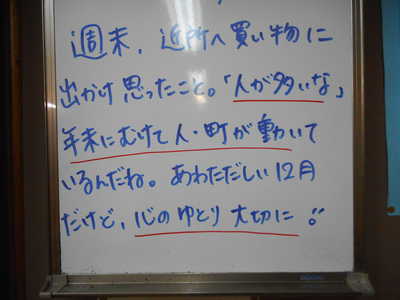 週末、近所へ買い物に
出かけ思ったこと。「人が多いな」
年末にむけて人・町が動いて
いるんだね。あわただしい12月
だけど、心のゆとり大切に!!